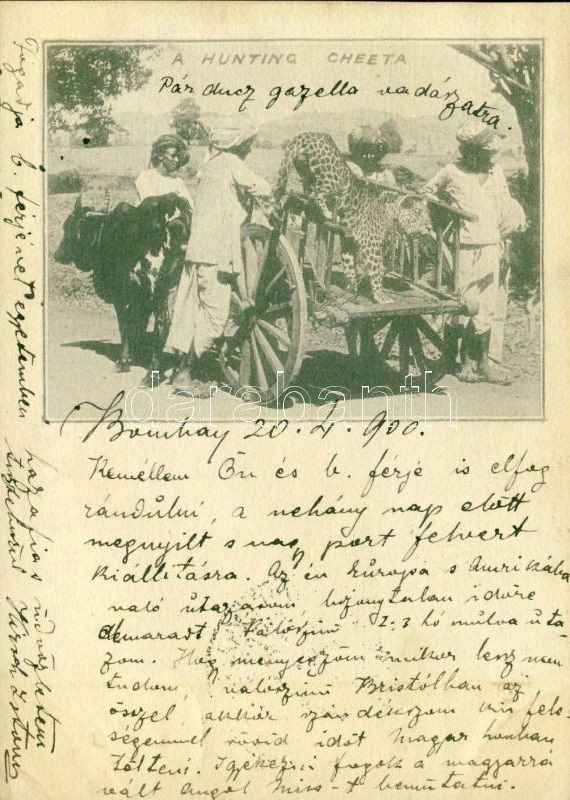 A HUNTING CHEETA
Párducz gazella vadászatra.
Bombay 20. 4. 900.
Reméllem Ön és b. férje is elfog
rándulni, a nehány nap elött
megnyilt s nagy port felvert
kiállitásra. Az én Európa s Amerikába
való utazásom, bizonytalan időre
elmaradt. Valószinü 2-3 hó mulva uta
zom. Hogy mikor lesz nem
tudom, valószinü Bristolban az
össze, akkor szándékozom kis fele-
ségemmel rövid idöt Magyar honban
tölteni. Igyekezni fogok a magyarrá
vált angol Miss-t bemutatni.
Fogadja b. férjével egyetemben
hazafias üdvözletem
tisztelettel
darabanth.com